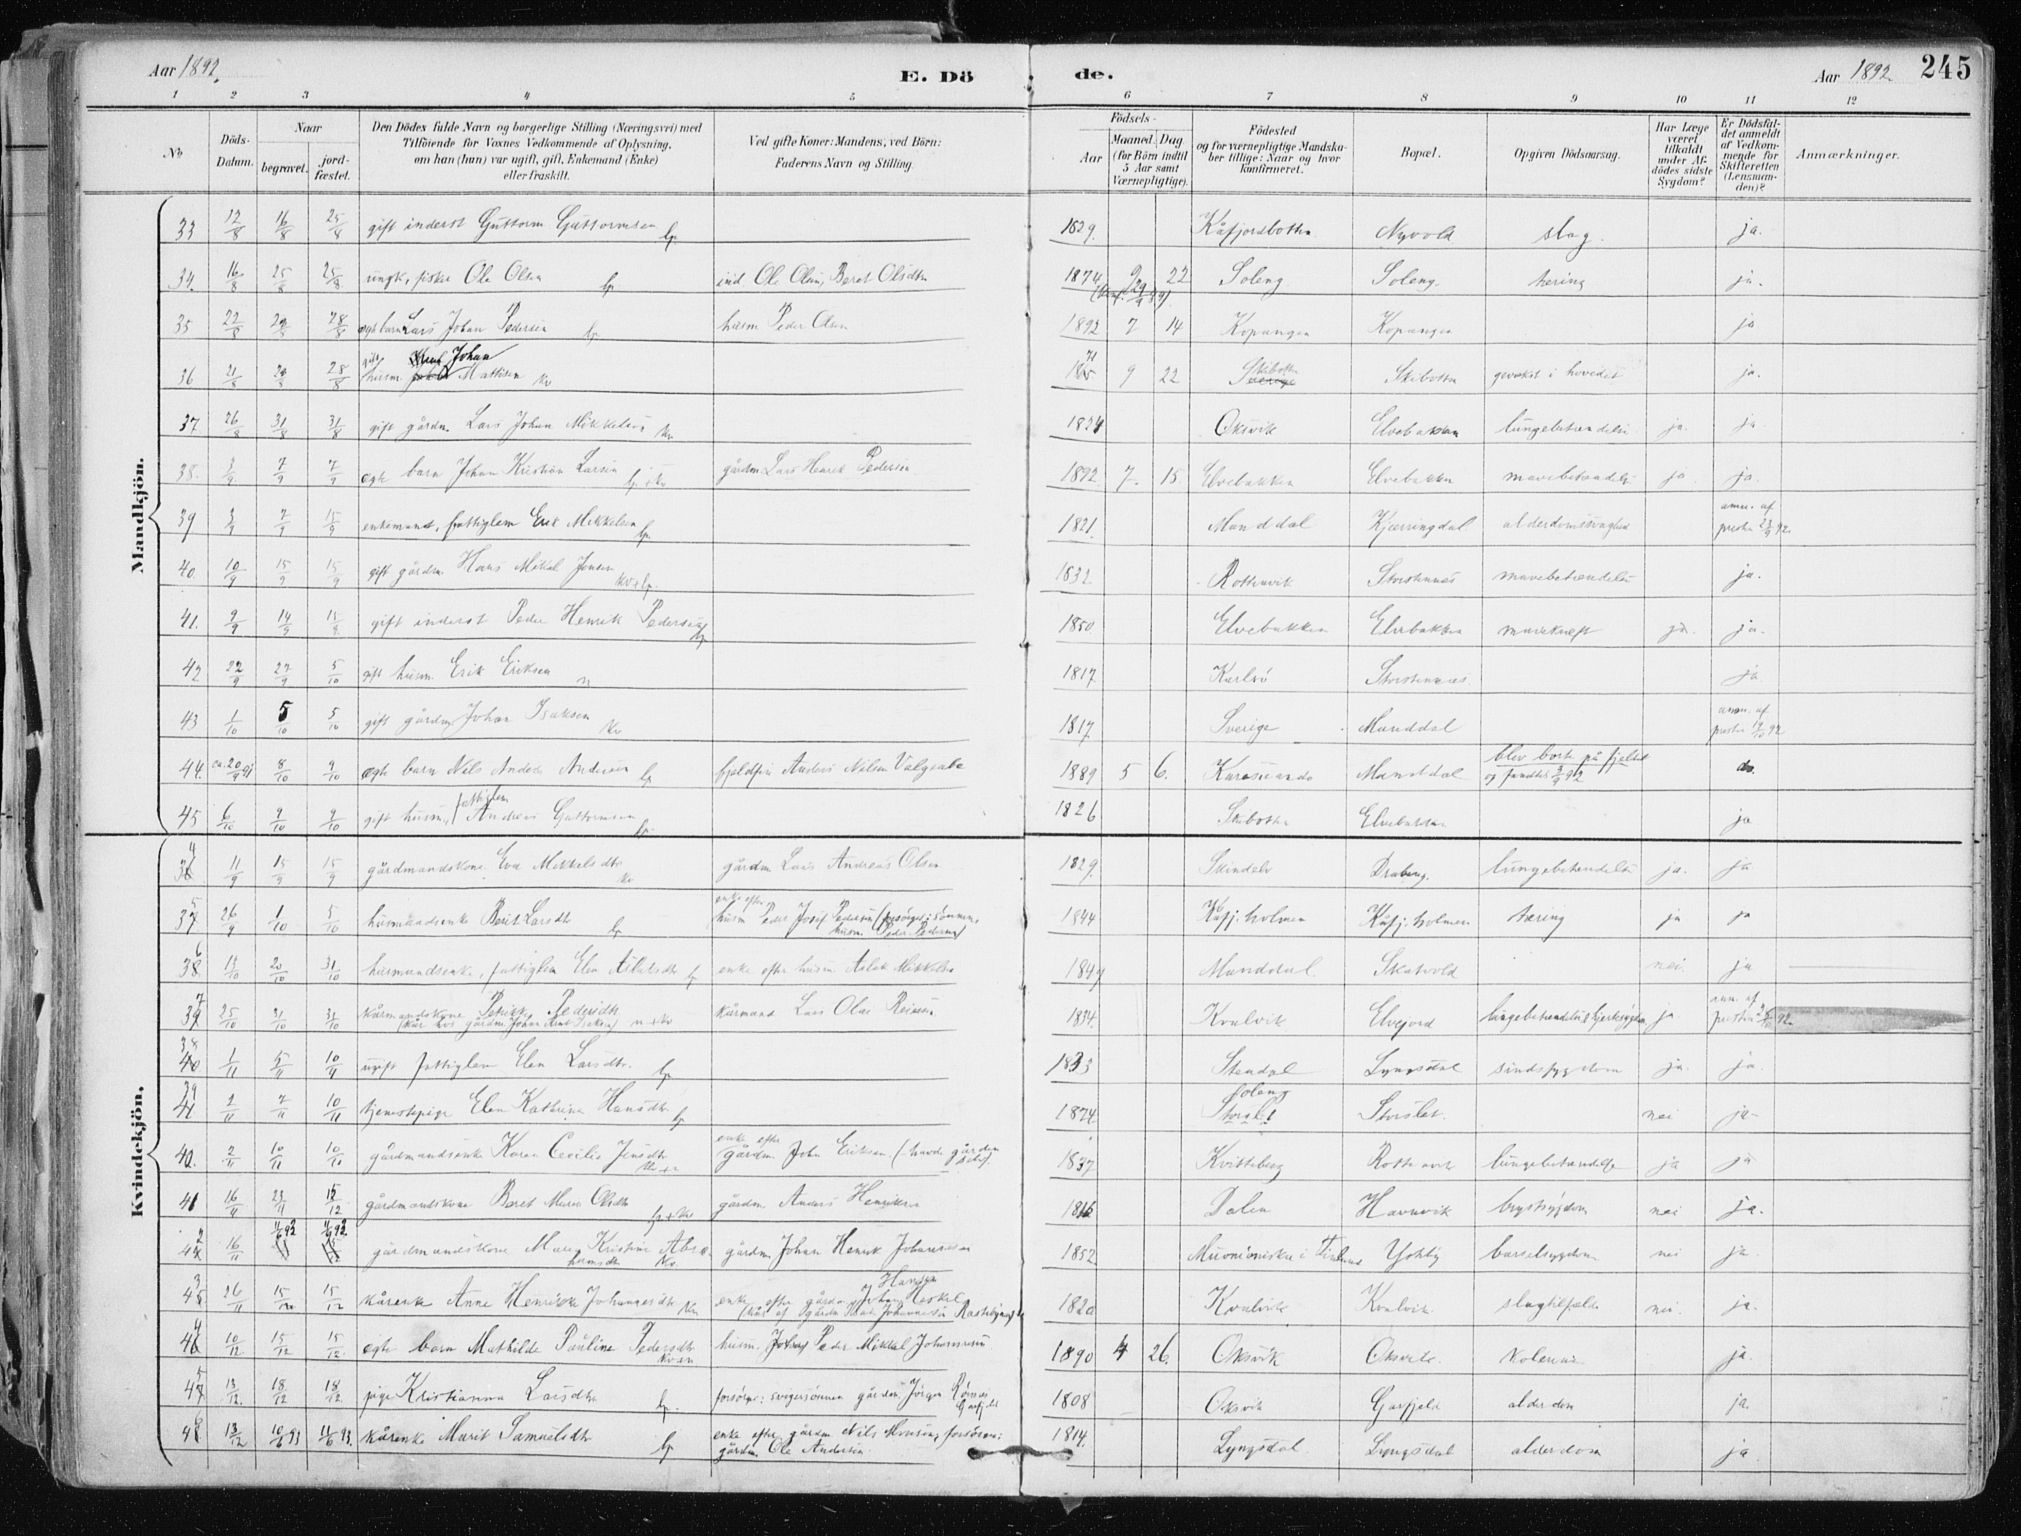 Aar 1892. E. Dö de. Aar 1892. 245
1 2 3 4 5 6 7 8 9 10 11 12
No
Döds-Datum.
Naar begravet. jord-fæstet.
Den Dödes fulde Navn og borgerlige Stilling (Næringsvei) med
Tilföiende for Voxnes Vedkommende af Oplysning,
om han (hun) var ugift, gift, Enkemand (Enke)
eller fraskilt.
Ved gifte Koner: Mandens; ved Börn:
Faderens Navn og Stilling.
Födsels-
Aar Maaned. Dag
(for Börn indtil
5 Aar samt
Værnepligtige).
Födested
og for værnepligtige Mandska-
ber tillige: Naar og hvor
konfirmeret.
Bopæl.
Opgiven Dödsaarsag.
Har Læge
været
tilkaldt
under Af-
dödes sidste
Sygdom?
Er Dödsfal-
det anmeldt
af Vedkom-
mende for
Skifteretten
(Lensman-
den)?
Anmærkninger.
Mandkjön.
33 12/8 16/8 25/8 gift inderst Guttorm Guttormsen lp. 1829. Kåfjordbotn Nyvold slag. ja.
34. 16/8 25/8 25/8 ungk. fisker Ole Olsen lp ind. Ole Olsen, Beret Olsdtr 1874 9 22 Soleng Soleng tæring ja.
35 22/8 28/8 28/8 egte barn Lars Johan Pedersen lp. husm Peder Olsen 1892 7 14 Kopangen Kopangen ja
36 21/8 28/8 28/8 gift husm. Johan Mathisen kv 71 9 22 Skibotn Skibotn gevækst i hovedet ja.
37. 26/8 31/8 31/8 gift gårdm. Lars Johan Mikkelsen kv 1834 Oksvik Elvebakken lungebetændelse ja. ja.
38. 3/9. 7/9 7/9 egte barn Johan Kristian Larsen lp. + kv gårdm. Lars Henrik Pedersen 1892. 7. 15. Elvebakken Elvebakken mavebetændelse ja ja.
39 3/9 7/9 15/9 enkemand, fattiglem Erik Mikkelsen lp. 1821. Manddal Kjærringdal alderdomssvaghed anm. af
presten 23/9 92.
40. 10/9 15/9 15/9 gift gårdm. Hans Mikal Jensen kv+lp. 1832 Rottenvik Storstennes mavebetændelse ja.
41. 9/9 14/9 15/9. gift inderst Peder Henrik Pedersen lp 1850 Elvebakken Elvebakken mavekræft ja. ja.
42 22/9 27/9 5/10 gift husm. Erik Eriksen n 1817 Karlsö Storstennes ja
43 1/10 5/10 5/10 gift gårdm. Johan Isaksen kv 1817 Sverige Manddal anm. af
presten 19/10 92
44. ca. 20/9 91 8/10 9/10 egte barn Nils Anders Andersen lp fjeldfin Anders Nilsen Valgeabe 1889 5 6. Karesuando Manddal blev bort på fjeldet
og fandtes 3/9 92 do.
45 6/10 9/10 9/10 gift husm., fattiglem Andreas Guttormsen lp. 1826 Skibotn Elvebakken ja
Kvindekjön.
34 11/9 15/9 15/9 gårdmandskone Eva Mikkelsdtr kv gårdm Lars Andreas Olsen 1829. Skindelv Draberg. lungebetændelse ja. ja
35 26/9 1/10 5/10 husmandsenke Berit Larsdtr lp enke efter
husm Peder Josef Pedersen (forsörget: sönnen
husm Peder Pedersen) 1844 Kåfj. holmen Kåfj. holmen tæring ja ja
36 13/10 20/10 31/10 husmandsenke, fattiglem Elen Aslaksdtr lp enke efter husm Aslak Mikkelsen 1847 Manddal Skatvold nei. ja
37 25/10 31/10 31/10 kårmandskone Pedersdtr
n + kv kårmand Lars Olai Reiersen 1834. Kvalvik Elvejord lungebetændelse ja anm. af
presten 92.
38 1/11 5/11 10/11 ugift fattiglem Elen Larsdtr. lp 1835 Stendal Lyngsdal sindssygdom ja. ja.
39 2/11 7/11 10/11 tjenestepige Elen Kathrine Hansdtr lp 1874 Soleng
Storslet Storslet. nei ja
40. 2/11 10/11 10/11 gårdmandsenke Karen Cecilie Jensdtr kv+n enke efter
gårdm. John Eriksen (havde gården
selv). 1837 Kvitteberg Rottenvik lungebetændelse ja ja
41 16/11 23/11 15/12 gårdmandskone Beret Marie Olsdtr lp + kv. gårdm. Anders Henriksen 1816 Dalen Havnvik brystsygdom nei ja.
42 16/11 11/6 93 11/6 93 gårdmandskone Maria Kristine Abra-
hamsdtr kv. gårdm Johan Henrik Johannesen 1852 Muonioniska i Finland Ytteby barselsygdom nei ja
43 26/11 15/12 15/12 kårenke Anne Henrikke Johannesdtr kv enke efter gårdm Johan Haskel Hansen
1820 Kvalvik Kvalvik slagtilfælde nei. ja.
44 10/12 15/12 15/12. egte barn Mathilde Pauline Pedersdtr kv+n husm. Peder Mikkal Johannesen 1890 4 26. Oksvik Oksvik kolerine ja.
45 13/12. 18/12 18/12. pige Kristianna Larsdtr lp. forsörger: svigersönnen gårdm. Jörgen 1808 Oksvik Garfjeld alderdom ja.
46 13/12 10/6 93 11/6 93. kårenke Marit Samuelsdtr lp enke efter gårdm Nils Monsen, forsörger:
gårdm. Ole Andersen. 1814. Lyngsdal Lyngsdal alderdom ja